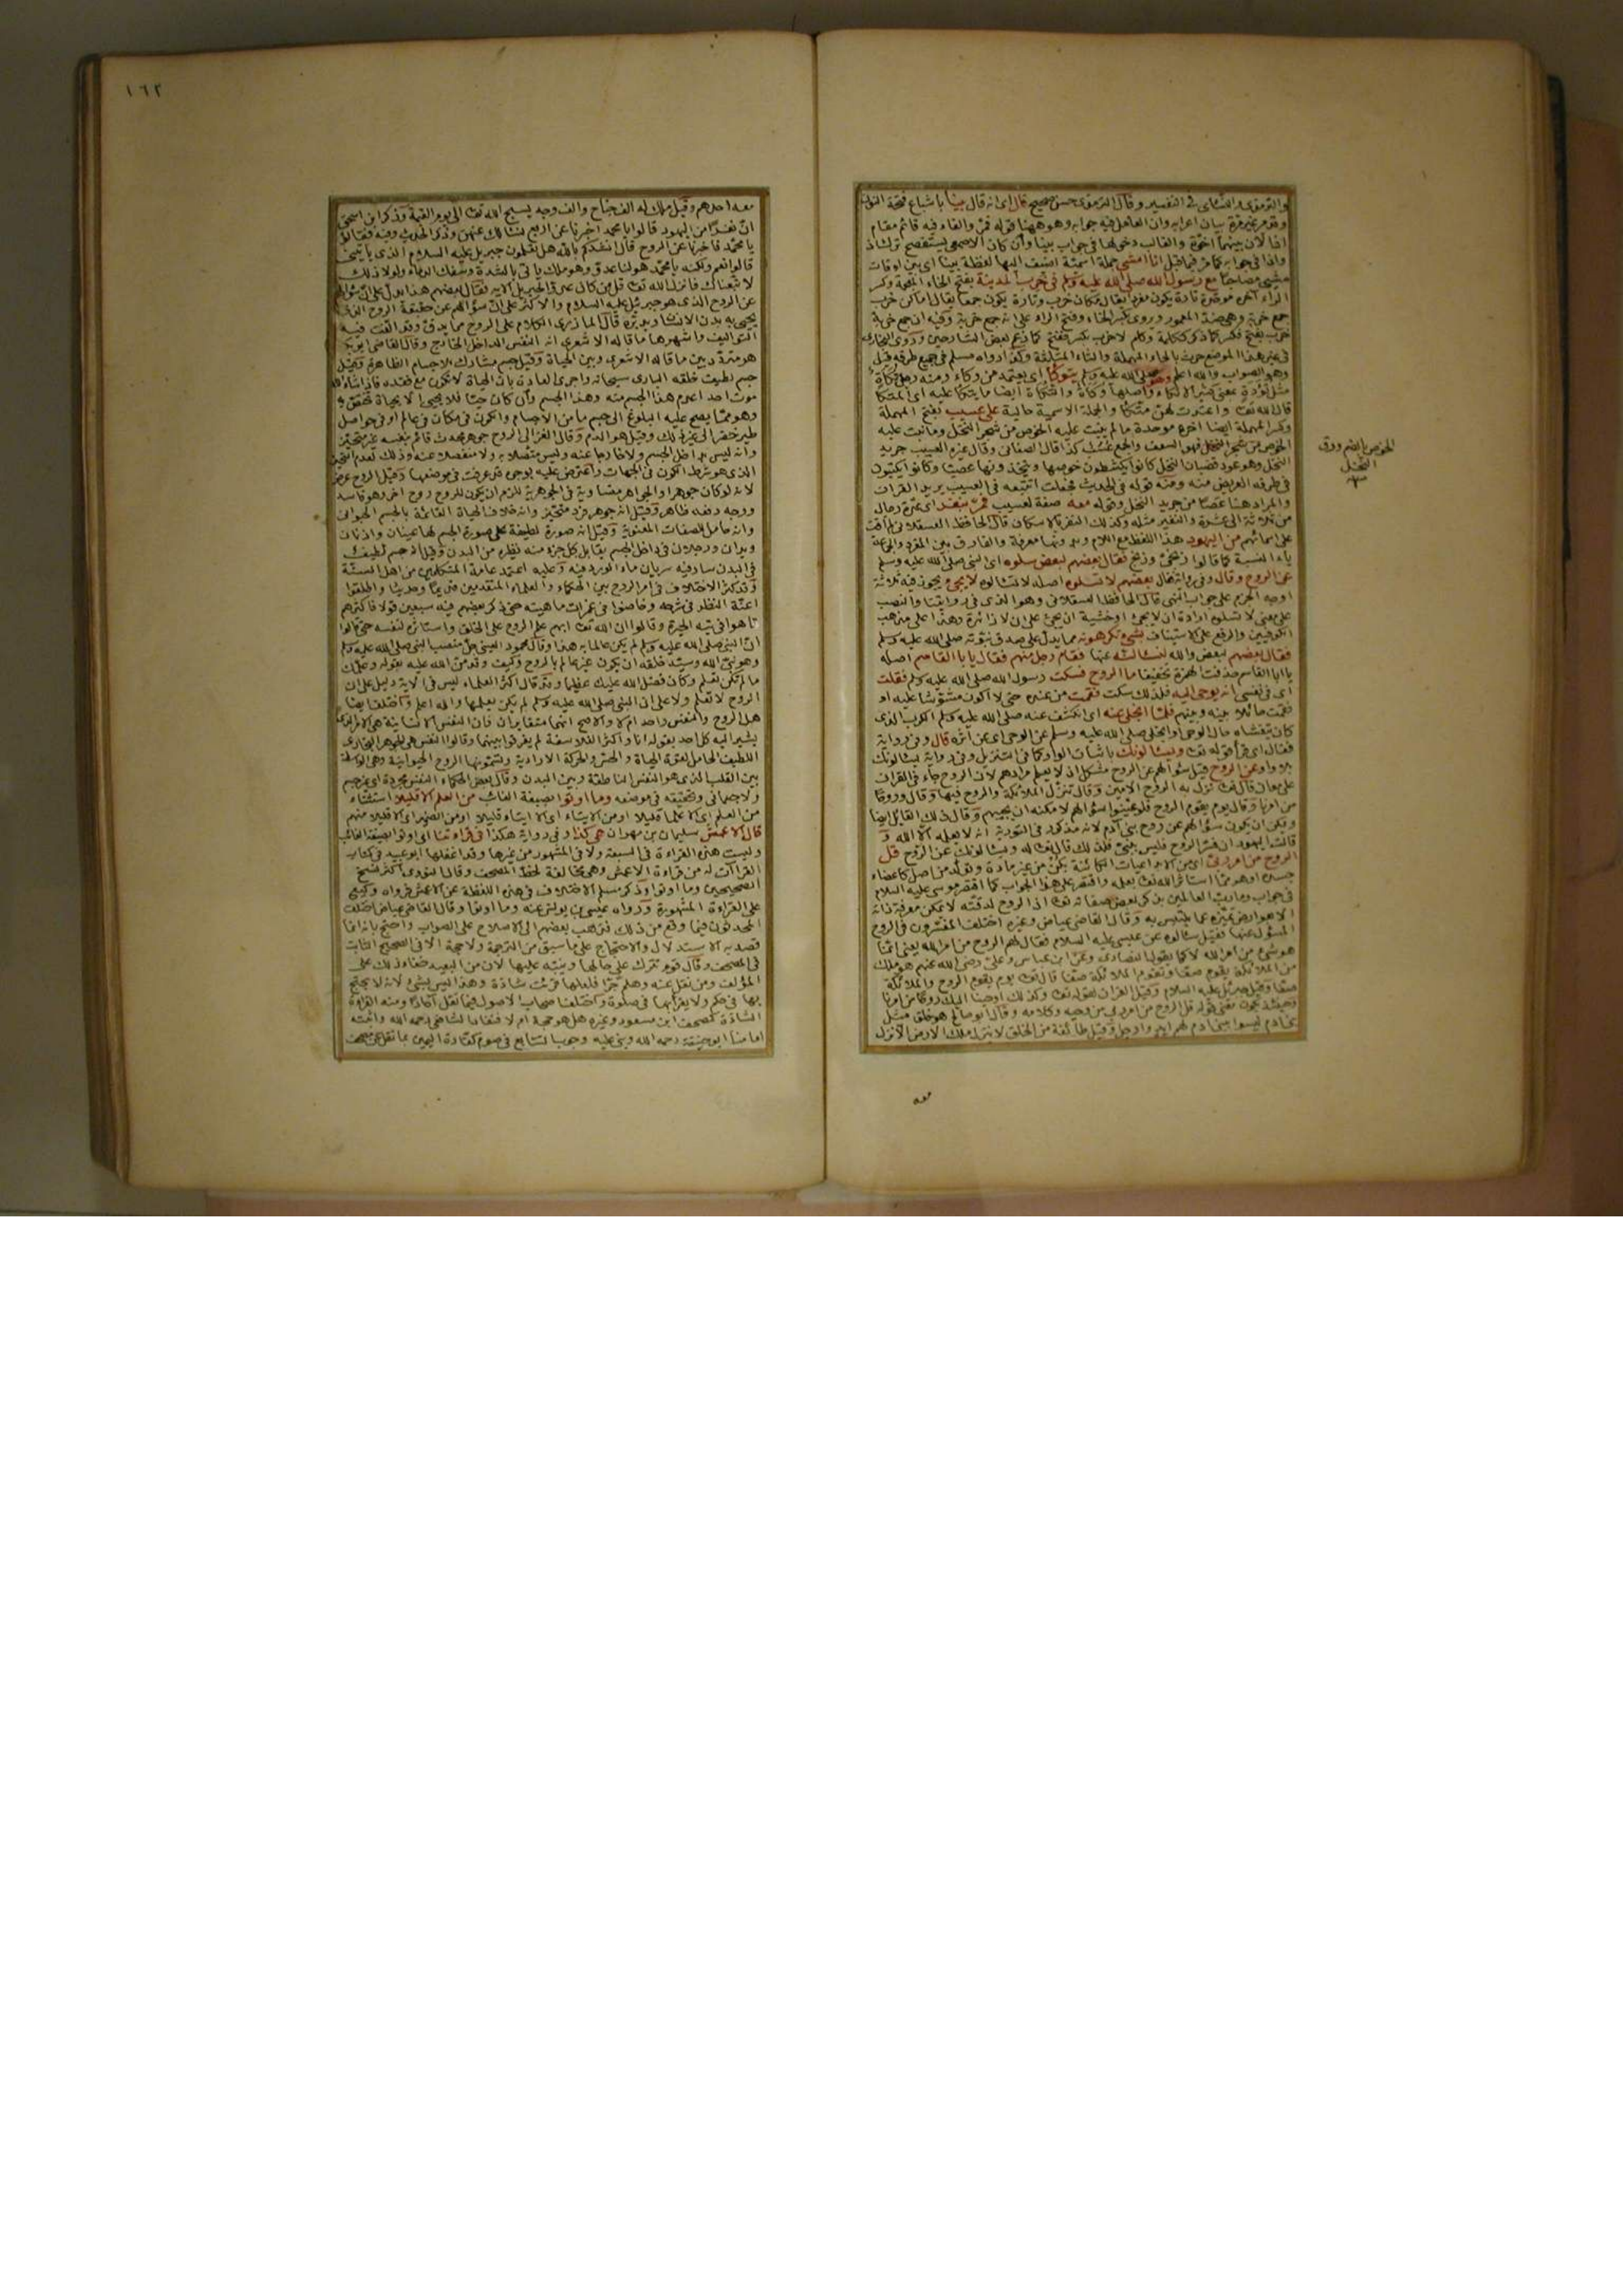 والترمذي والنسائي في التفسير وقال الترمذي حسن صحيح قال اي انه قال بينا باشباع فتحة النون
وقد مر غير مرة بيان اعرابه وان العامل فيه جوابه وهو ههنا قوله فمر والفاء فيه قائم مقام
اذا لان بينهما اخوة والغالب دخولها في جواب بينا وان كان الاصمعي يستفصح ترك اذ
واذا في جوابه كما مر فيما قبل انا امشي جملة اسمية اضيف اليها لفظة بينا اي بين اوقات
مشيي مصاحبا مع رسول الله صلى الله عليه وسلم في خرب المدينة بفتح الخاء المعجمة وكسر
الراء آخره موحدة تارة يكون مفردا يقال مكان خرب وتارة يكون جمعا يقال اماكن خرب
جمع خربة وهي ضد المعمور وروي بكسر الخاء وفتح الراء على انه جمع خربة وفيه ان جمع خربة
خرب بفتح فكسر كما ذكر ككلمة وكلم لا خرب بكسر ففتح كما زعم بعض الشارحين وروى البخاري
في غير هذا الموضع حرث بالحاء المهملة والثاء المثلثة وكذا رواه مسلم في جميع طرقه قيل
وهو الصواب والله اعلم وهو صلى الله عليه وسلم يتوكأ اي يعتمد من وكاء ومنه رجل تكأة
مثل تؤدة بمعنى كثير الاتكاء واصلها وكأة والتكأة ايضا ما يتكأ عليه اي المتكأ
قال الله تعالى واعتدت لهن متكئا والجملة الاسمية حالية على عسيب بفتح المهملة
وكسر المهملة ايضا آخره موحدة ما لم ينبت عليه الخوص من شجر النخل وما نبت عليه
الخوص من شجر النخل فهو السعف والجمع عسب كذا قال الصغاني وقال غيره العسيب جريد
النخل وهو عود قضبان النخل كانوا يكشطون خوصها ويتخذونها عصيا وكانوا يكتبون
في طرفه العريض منه ومنه قوله في الحديث فجعلت اتتبعه في العسيب يريد القرآن
والمراد هنا عصا من جريد النخل وقوله معه صفة لعسيب فمر بنفر اي عدة رجال
من ثلاثة الى عشرة والنفير مثله وكذلك النفر بالاسكان قال الحافظ العسقلاني لم اقف
على اسمائهم من اليهود هذا اللفظ مع اللام وبدونها معرفة والفارق بين المفرد والجماعة
ياء النسبة كما قالوا زنجي وزنج فقال بعضهم لبعض سلوه اي النبي صلى الله عليه وسلم
عن الروح وقال وفي رواية فقال بعضهم لا تسلوه اصله لا تسألوه لا يجيء يجوز فيه ثلاثة
اوجه الجزم على جواب النهي قال الحافظ العسقلاني وهو الذي في روايتنا والنصب
على معنى لا تسلوه ارادة ان لا يجيء او خشية ان يجيء على ان لا زائدة وهذا على مذهب
الكوفيين والرفع على الاستيناف بشيء تكرهونه مما يدل على صدق نبوته صلى الله عليه وسلم
فقال بعضهم لبعض والله لنسألنه عنها فقام رجل منهم فقال يا ابا القاسم اصله
يا ابا القاسم حذفت الهمزة تخفيفا ما الروح فسكت رسول الله صلى الله عليه وسلم فقلت
اي في نفسي انه يوحى اليه فلذلك سكت فقمت من عنده حتى لا اكون مشوشا عليه او
فقمت حائلا بينه وبينهم فلما انجلى عنه اي انكشف عنه صلى الله عليه وسلم الكرب الذي
كان يتغشاه حال الوحي او انجلى صلى الله عليه وسلم عن الوحي اي عن اثره قال وفي رواية
فقال اي قرأ قوله تعالى ويسألونك باثبات الواو كما في التنزيل وفي رواية يسألونك
بلا واو عن الروح قيل سؤالهم عن الروح مشكل اذ لا يعلم مرادهم لان الروح جاء في القرآن
على معان قال تعالى نزل به الروح الامين وقال تنزل الملائكة والروح فيها وقال وروحا
من امرنا وقال يوم يقوم الروح فلو عينوا سؤالهم لامكنه ان يجيبهم وقال ذلك القائل ايضا
ويمكن ان يكون سؤالهم عن روح بني آدم لانه مذكور في التورية انه لا يعلمه الا الله و
قالت اليهود ان فسر الروح فليس بنبي فلذلك قال تعالى له ويسألونك عن الروح قل
الروح من امر ربي اي من الابداعيات الكائنة بكن من غير مادة وتولد من اصل كاعضاء
جسده او هو مما استأثر الله تعالى بعلمه واقتصر على هذا الجواب كما اقتصر موسى عليه السلام
في جواب وما رب العالمين بذكر بعض صفاته تعالى اذ الروح لدقته لا تمكن معرفة ذاته
الا بعوارض تميزه عما يلتبس به وقال القاضي عياض وغيره اختلف المفسرون في الروح
المسؤل عنها فقيل سألوه عن عيسى عليه السلام فقال لهم الروح من امر الله يعني انما
هو شيء من امر الله لا كما يقول النصارى وعن ابن عباس وعلي رضي الله عنهم هو ملك
من الملائكة يقوم صفا وتقوم الملائكة صفا قال تعالى يوم يقوم الروح والملائكة
صفا وقيل جبريل عليه السلام وقيل القرآن لقوله تعالى وكذلك اوحينا اليك روحا من امرنا
وحينئذ يكون معنى قوله قل الروح من امر ربي من وحيه وكلامه وقال ابو صالح هو خلق مثل
بني آدم ليسوا ببني آدم لهم ايد وارجل وقيل طائفة من الخلق لا ينزل ملك الى الارض الا نزل
معه
الخوص بالضم ورق
النخل
١٦٢
معه احدهم وقيل ملك له الف جناح والف وجه يسبح الله تعالى الى يوم القيمة وذكر ابن اسحق
ان نفرا من اليهود قالوا يا محمد اخبرنا عن اربع نسألك عنهن وذكر الحديث وفيه فقالوا
يا محمد فاخبرنا عن الروح قال انشدكم بالله هل تعلمون جبريل عليه السلام الذي يأتيني
قالوا نعم ولكنه يا محمد هو لنا عدو وهو ملك يأتي بالشدة وسفك الدماء ولولا ذلك
لاتبعناك فانزل الله تعالى قل من كان عدوا لجبريل الآية فقال بعضهم هذا يدل على ان سؤالهم
عن الروح الذي هو جبرئيل عليه السلام والاكثر على ان سؤالهم عن حقيقة الروح الذي
يحيى به بدن الانسان ويدبره قال المازري الكلام على الروح مما يدق وقد الفت فيه
التواليف واشهرها ما قاله الاشعري انه النفس الداخل الخارج وقال القاضي ابو بكر
هو متردد بين ما قاله الاشعري وبين الحياة وقيل جسم مشارك للاجسام الظاهرة وقيل
جسم لطيف خلقه الباري سبحانه واجرى العادة بان الحياة لا تكون مع فقده فاذا شاء الله
موت احد اعدم هذا الجسم منه وهذا الجسم وان كان حيا فلا يحيى الا بحياة تختص به
وهو مما يصح عليه البلوغ الى جسم ما من الاجسام والكون في مكان في العالم او في حواصل
طير خضر الى غير ذلك وقيل هو الدم وقال الغزالي الروح جوهر محدث قائم بنفسه غير متحيز
وانه ليس بداخل الجسم ولا خارجا عنه وليس متصلا به ولا منفصلا عنه وذلك لعدم التحيز
الذي هو شرط الكون في الجهات واعترض عليه بوجوه قد عرفت في موضعها وقيل الروح عرض
لانه لو كان جوهرا والجواهر متساوية في الجوهرية للزم ان يكون للروح روح آخر وهو فاسد
ووجه دفعه ظاهر وقيل انه جوهر فرد متحيز وانه خلاف الحياة القائمة بالجسم الحيواني
وانه حامل للصفات المعنوية وقيل انه صورة لطيفة على صورة الجسم لها عينان واذنان
ويدان ورجلان في داخل الجسم يقابل كل جزء منه نظيره من البدن وقيل انه جسم لطيف
في البدن سار فيه سريان ماء الورد فيه وعليه اعتمد عامة المتكلمين من اهل السنة
وقد كثر الاختلاف في امر الروح بين الحكماء والعلماء المتقدمين قديما وحديثا واطلقوا
اعنة النظر في شرحه وخاضوا في غمرات ماهيته حتى ذكر بعضهم فيه سبعين قولا فاكثرهم
تاهوا في تيه الحيرة وقالوا ان الله تعالى ابهم علم الروح على الخلق واستأثره لنفسه حتى قالوا
ان النبي صلى الله عليه وسلم لم يكن عالما به هذا وقال محمود العيني جل منصب النبي صلى الله عليه وسلم
وهو نبي الله وسيد خلقه ان يكون غير عالم بالروح وكيف وقد من الله عليه بقوله وعلمك
ما لم تكن تعلم وكان فضل الله عليك عظيما وقد قال اكثر العلماء ليس في الآية دليل على ان
الروح لا تعلم ولا على ان النبي صلى الله عليه وسلم لم يكن يعلمها والله اعلم واختلف ايضا
هل الروح والنفس واحد ام لا والاصح انهما متغايران فان النفس الانسانية هي الامر الذي
يشير اليه كل احد بقوله انا واكثر الفلاسفة لم يفرقوا بينهما وقالوا النفس هي الجوهر البخاري
اللطيف الحامل لقوة الحياة والحس والحركة الارادية ويسمونها الروح الحيوانية وهي الواسطة
بين القلب الذي هو النفس الناطقة وبين البدن وقال بعض الحكماء النفس مجردة اي غير جسم
ولا جسماني وتحقيقه في موضعه وما اوتوا بصيغة الغائب من العلم الا قليلا استثناء
من العلم اي الا علما قليلا او من الايتاء اي الا ايتاء قليلا او من الضمير اي الا قليلا منهم
قال الاعمش سليمان بن مهران هي كذا وفي رواية هكذا في قراءتنا اي اوتوا بصيغة الغائب
وليست هذه القراءة في السبعة ولا في المشهور من غيرها وقد اغفلها ابو عبيد في كتاب
القراآت له من قراءة الاعمش وهي مخالفة لخط المصحف وقال النووي اكثر نسخ
الصحيحين وما اوتوا وذكر مسلم الاختلاف في هذه اللفظة عن الاعمش فرواه وكيع
على القراءة المشهورة ورواه عيسى بن يونس عنه وما اوتوا وقال القاضي عياض اختلف
المحدثون فيما وقع من ذلك فذهب بعضهم الى الاصلاح على الصواب واحتج بانه انما
قصد به الاستدلال والاحتجاج على ما سبق من الترجمة ولا حجة الا في الصحيح الثابت
في المصحف وقال قوم تترك على حالها وينبه عليها لان من البعيد خفاء ذلك على
المؤلف ومن نقل عنه وهلم جرا فلعلها قرئت شاذة وهذا ليس بشيء لانه لا يحتج
بها في حكم ولا يقرأ بها في صلوة واختلف اصحاب الاصول فيما نقل آحادا ومنه القراءة
الشاذة كمصحف ابن مسعود وغيره هل هو حجة ام لا فنفاه الشافعي رحمه الله واثبته
امامنا ابو حنيفة رحمه الله وبنى عليه وجوب التتابع في صوم كفارة اليمين بما نقل عن مصحف